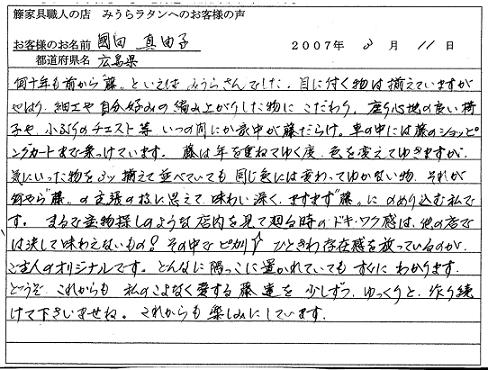 籐家具職人の店 みうらラタンへのお客様の声
お客様のお名前 國田 真由子
2007年 3月 11日
都道府県名 広島県
何十年も前から"藤"といえば みうらさんでした。目に付く物は揃えていますが
やはり、細工や自分好みの編み上がりした物に こだわり、座り心地の良い椅
子や、小ぶりのチェスト等 いつの間にか家中が藤だらけ。車の中には藤のショッピ
ングカートまで乗っけています。藤は年を重ねてゆく度、色を変えてゆきますが、
気にいった物を2つ揃えて並べていても 同じ色には変わってゆかない物、それが
何やら"藤"の主張の様に思えて 味わい深く、ますます"藤"にのめり込む私で
す。まるで宝物探しのような店内を見て廻る時のドキ・ワク感は、他の店で
は決して味わえないもの? その中でピカリ ひときわ存在感を放っているのが、
ご主人のオリジナルです。どんなに隅っこに置かれていても すぐにわかります。
どうぞ、これからも 私のこよなく愛する藤達を 少しずつ、ゆっくりと、作り続
けて下さいませね。これからも楽しみにしています。